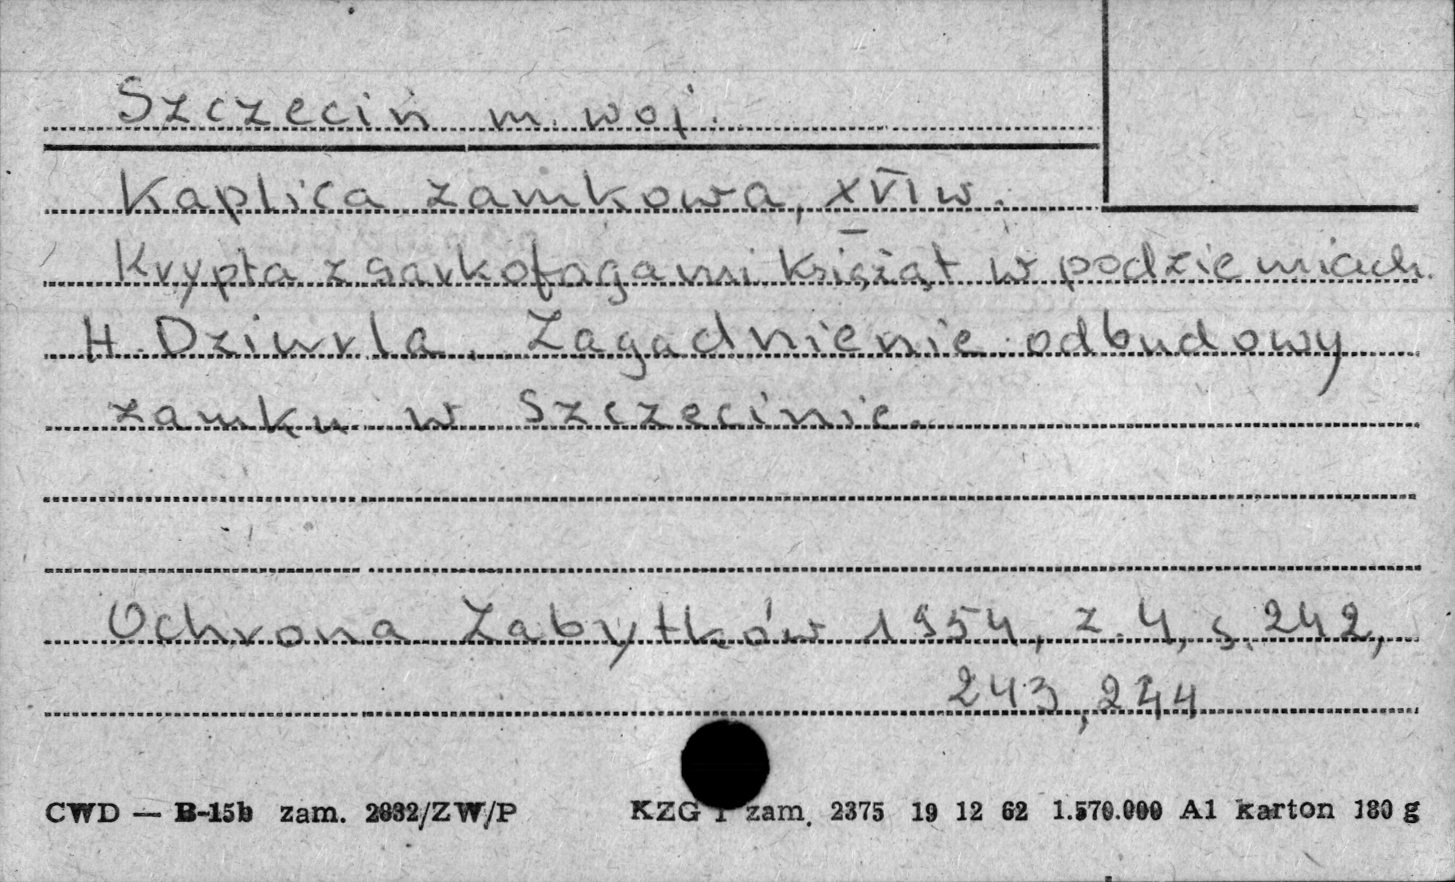 Szczecin m. woj.
Kaplica zamkowa, XVI w.
Krypta z sarkofagami książąt w podziemiach.
H. Dziurla. Zagadnienie odbudowy
zamku w Szczecinie.
Ochrona Zabytków 1954, z. 4, s. 242,
243, 244
CWD — B-15b zam. 2832/ZW/P KZG 1 zam. 2375 19 12 62 1.570.000 A1 karton 180 g